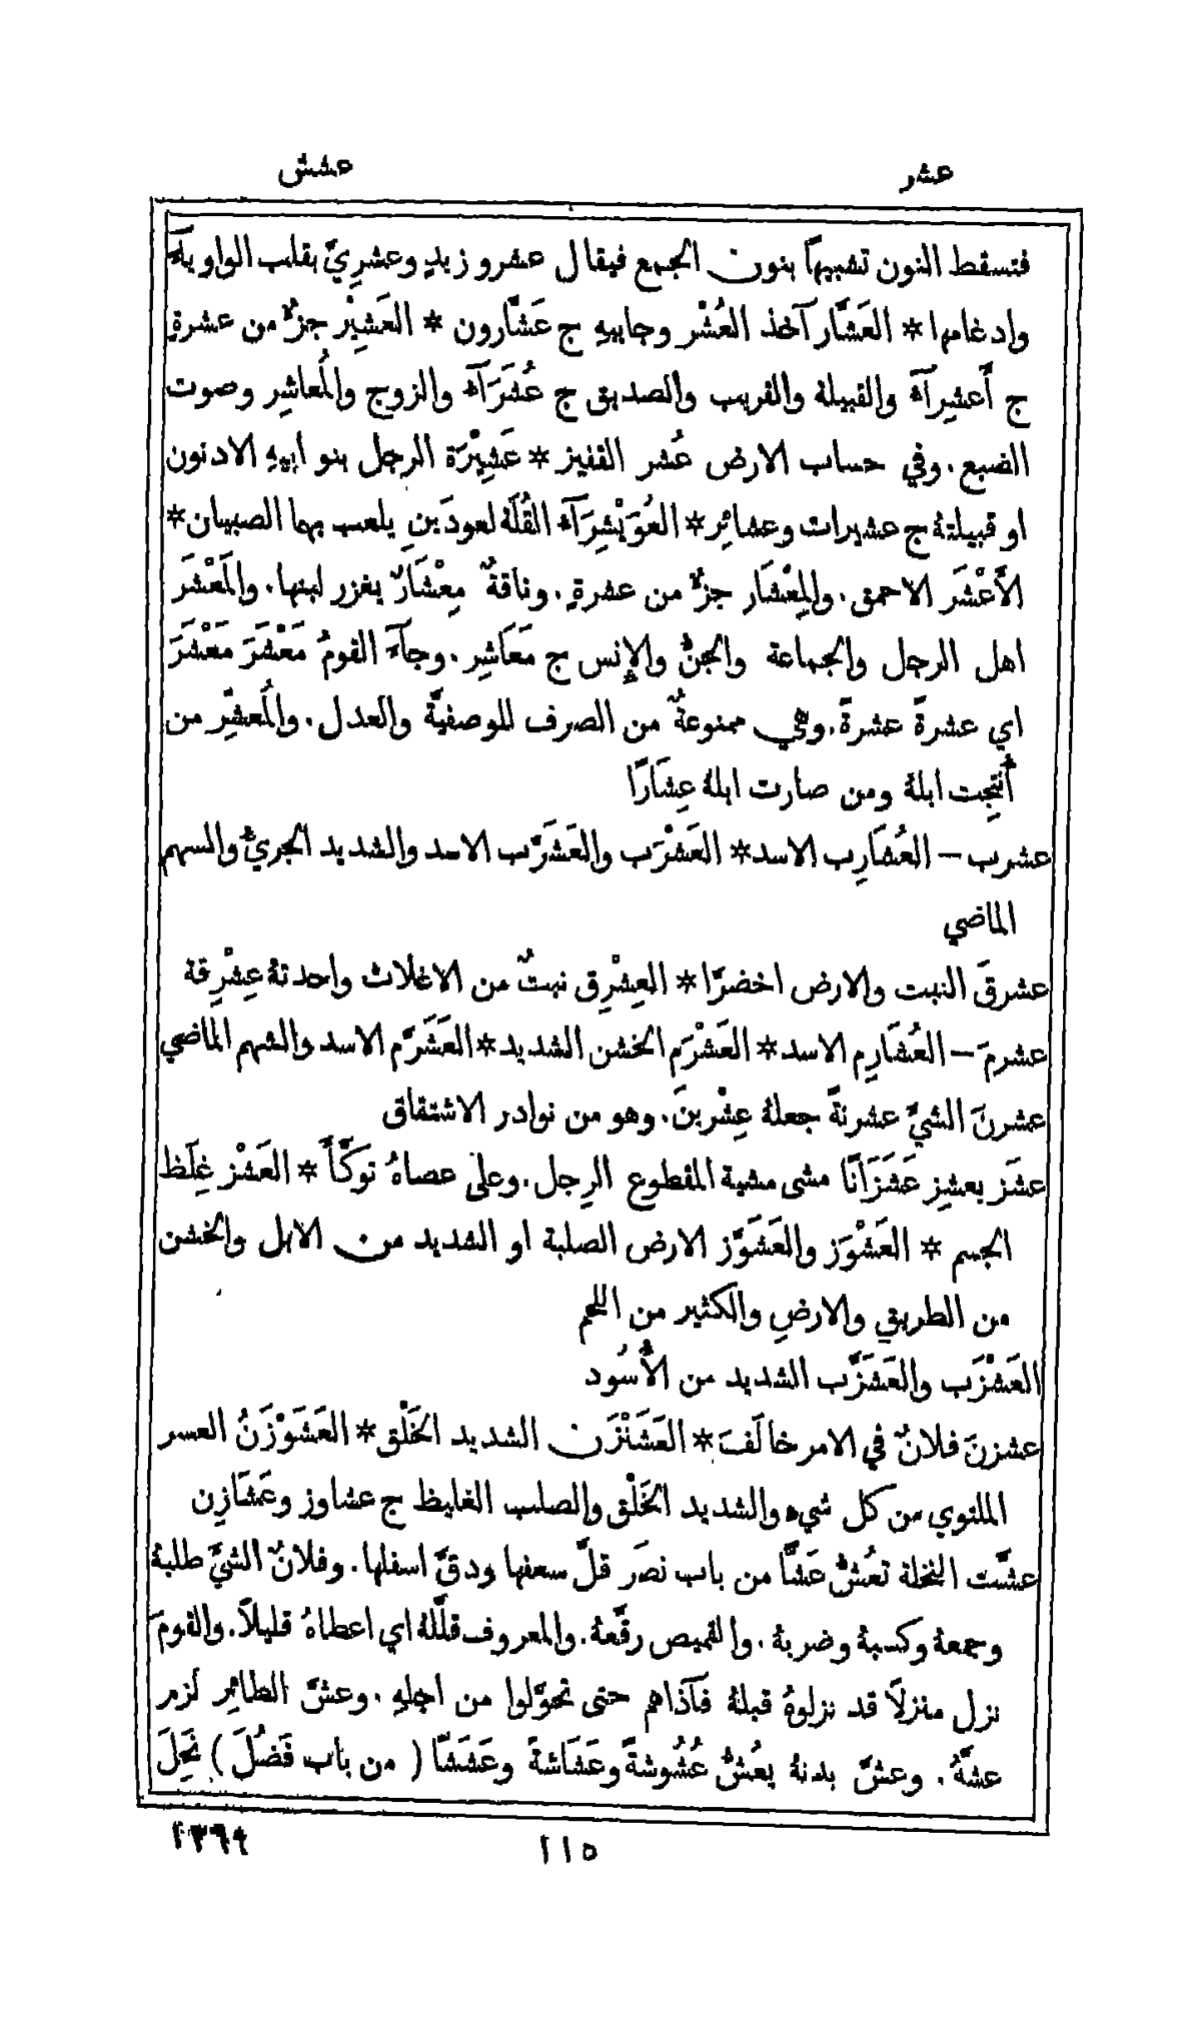 عشر
عشش
فتسقط النون تشبيهًا بنون الجمع فيقال عشرو زيدٍ وعشرِيَّ بقلب الواو يآءً
وادغامها * العَشَّار آخذ العُشْر وجابيهِ ج عَشَّارون * العَشِيْر جزءٌ من عشرةٍ
ج أَعشِرآء والقبيلة والقريب والصديق ج عُشَرَآء والزوج والمُعاشِر وصوت
الضبع . وفي حساب الارض عُشر القفيز * عَشِيْرَة الرجل بنو ابيهِ الادنون
او قبيلتهُ ج عشيرات وعشائِر * العُوَيْشِرَآء القُلَة لعودَينِ يلعب بهما الصبيان *
الأَعْشَر الاحمق . والمِعْشَار جزءٌ من عشرةٍ . وناقةٌ مِعْشَارٌ يغزر لبنها . والمَعْشَر
اهل الرجل والجماعة والجنُّ والإنس ج مَعَاشِر . وجآء القومُ مَعْشَرَ مَعْشَرَ
اي عشرةً عشرةً . وهي ممنوعةٌ من الصرف للوصفيَّة والعدل . والمُعشِّر من
أُنتِجت ابلهُ ومن صارت ابلهُ عِشَارًا
عشرب – العُشَارِب الاسد * العَشْرَب والعَشَرَّب الاسد والشديد الجريءُ والسهم
الماضي
عشرقَ النبت والارض اخضرَّا * العِشْرِق نبتٌ من الاغلاث واحدتهُ عِشْرِقة
عشرمَ – العُشَارِم الاسد * العَشْرَم الخشن الشديد * العَشَرَّم الاسد والشهم الماضي
عشرنَ الشيَّ عشرنةً جعلهُ عِشْرينَ . وهو من نوادر الاشتقاق
عشَز يعشِز عَشَزَانًا مشى مشية المقطوع الرِجل . وعلى عصاهُ توكَّأَ * العَشْز غِلَظ
الجسم * العَشْوَز والعَشَوَّز الارض الصلبة او الشديد من الابل والخشن
من الطريق والارضِ والكثير من اللحم
العَشْزَب والعَشَزَّب الشديد من الأُسُود
عشزنَ فلانٌ في الامر خالَفَ * العَشَنْزَن الشديد الخَلْق * العَشَوْزَنُ العسر
الملتوي من كل شيء والشديد الخَلْق والصلب الغليظ ج عشاوز وعَشَازِن
عشَّت النخلة تعُشُّ عَشًّا من باب نصَر قلَّ سعفها ودقَّ اسفلها . وفلانٌ الشيَّ طلبهُ
وجمعهُ وكسبهُ وضربهُ . والقميص رقَّعهُ . والمعروف قلَّلهُ اي اعطاهُ قليلاً . والقومَ
نزل منزلاً قد نزلوهُ قبلهُ فآذاهم حتى تحوَّلوا من اجلهِ . وعشَّ الطائِر لزم
عشَّهُ . وعشَّ بدنهُ يعُشُّ عُشُوشةً وعَشَاشةً وعَشَشًا ( من باب فَضُلَ ) نَحِلَ
١١٥
١٣٦٩